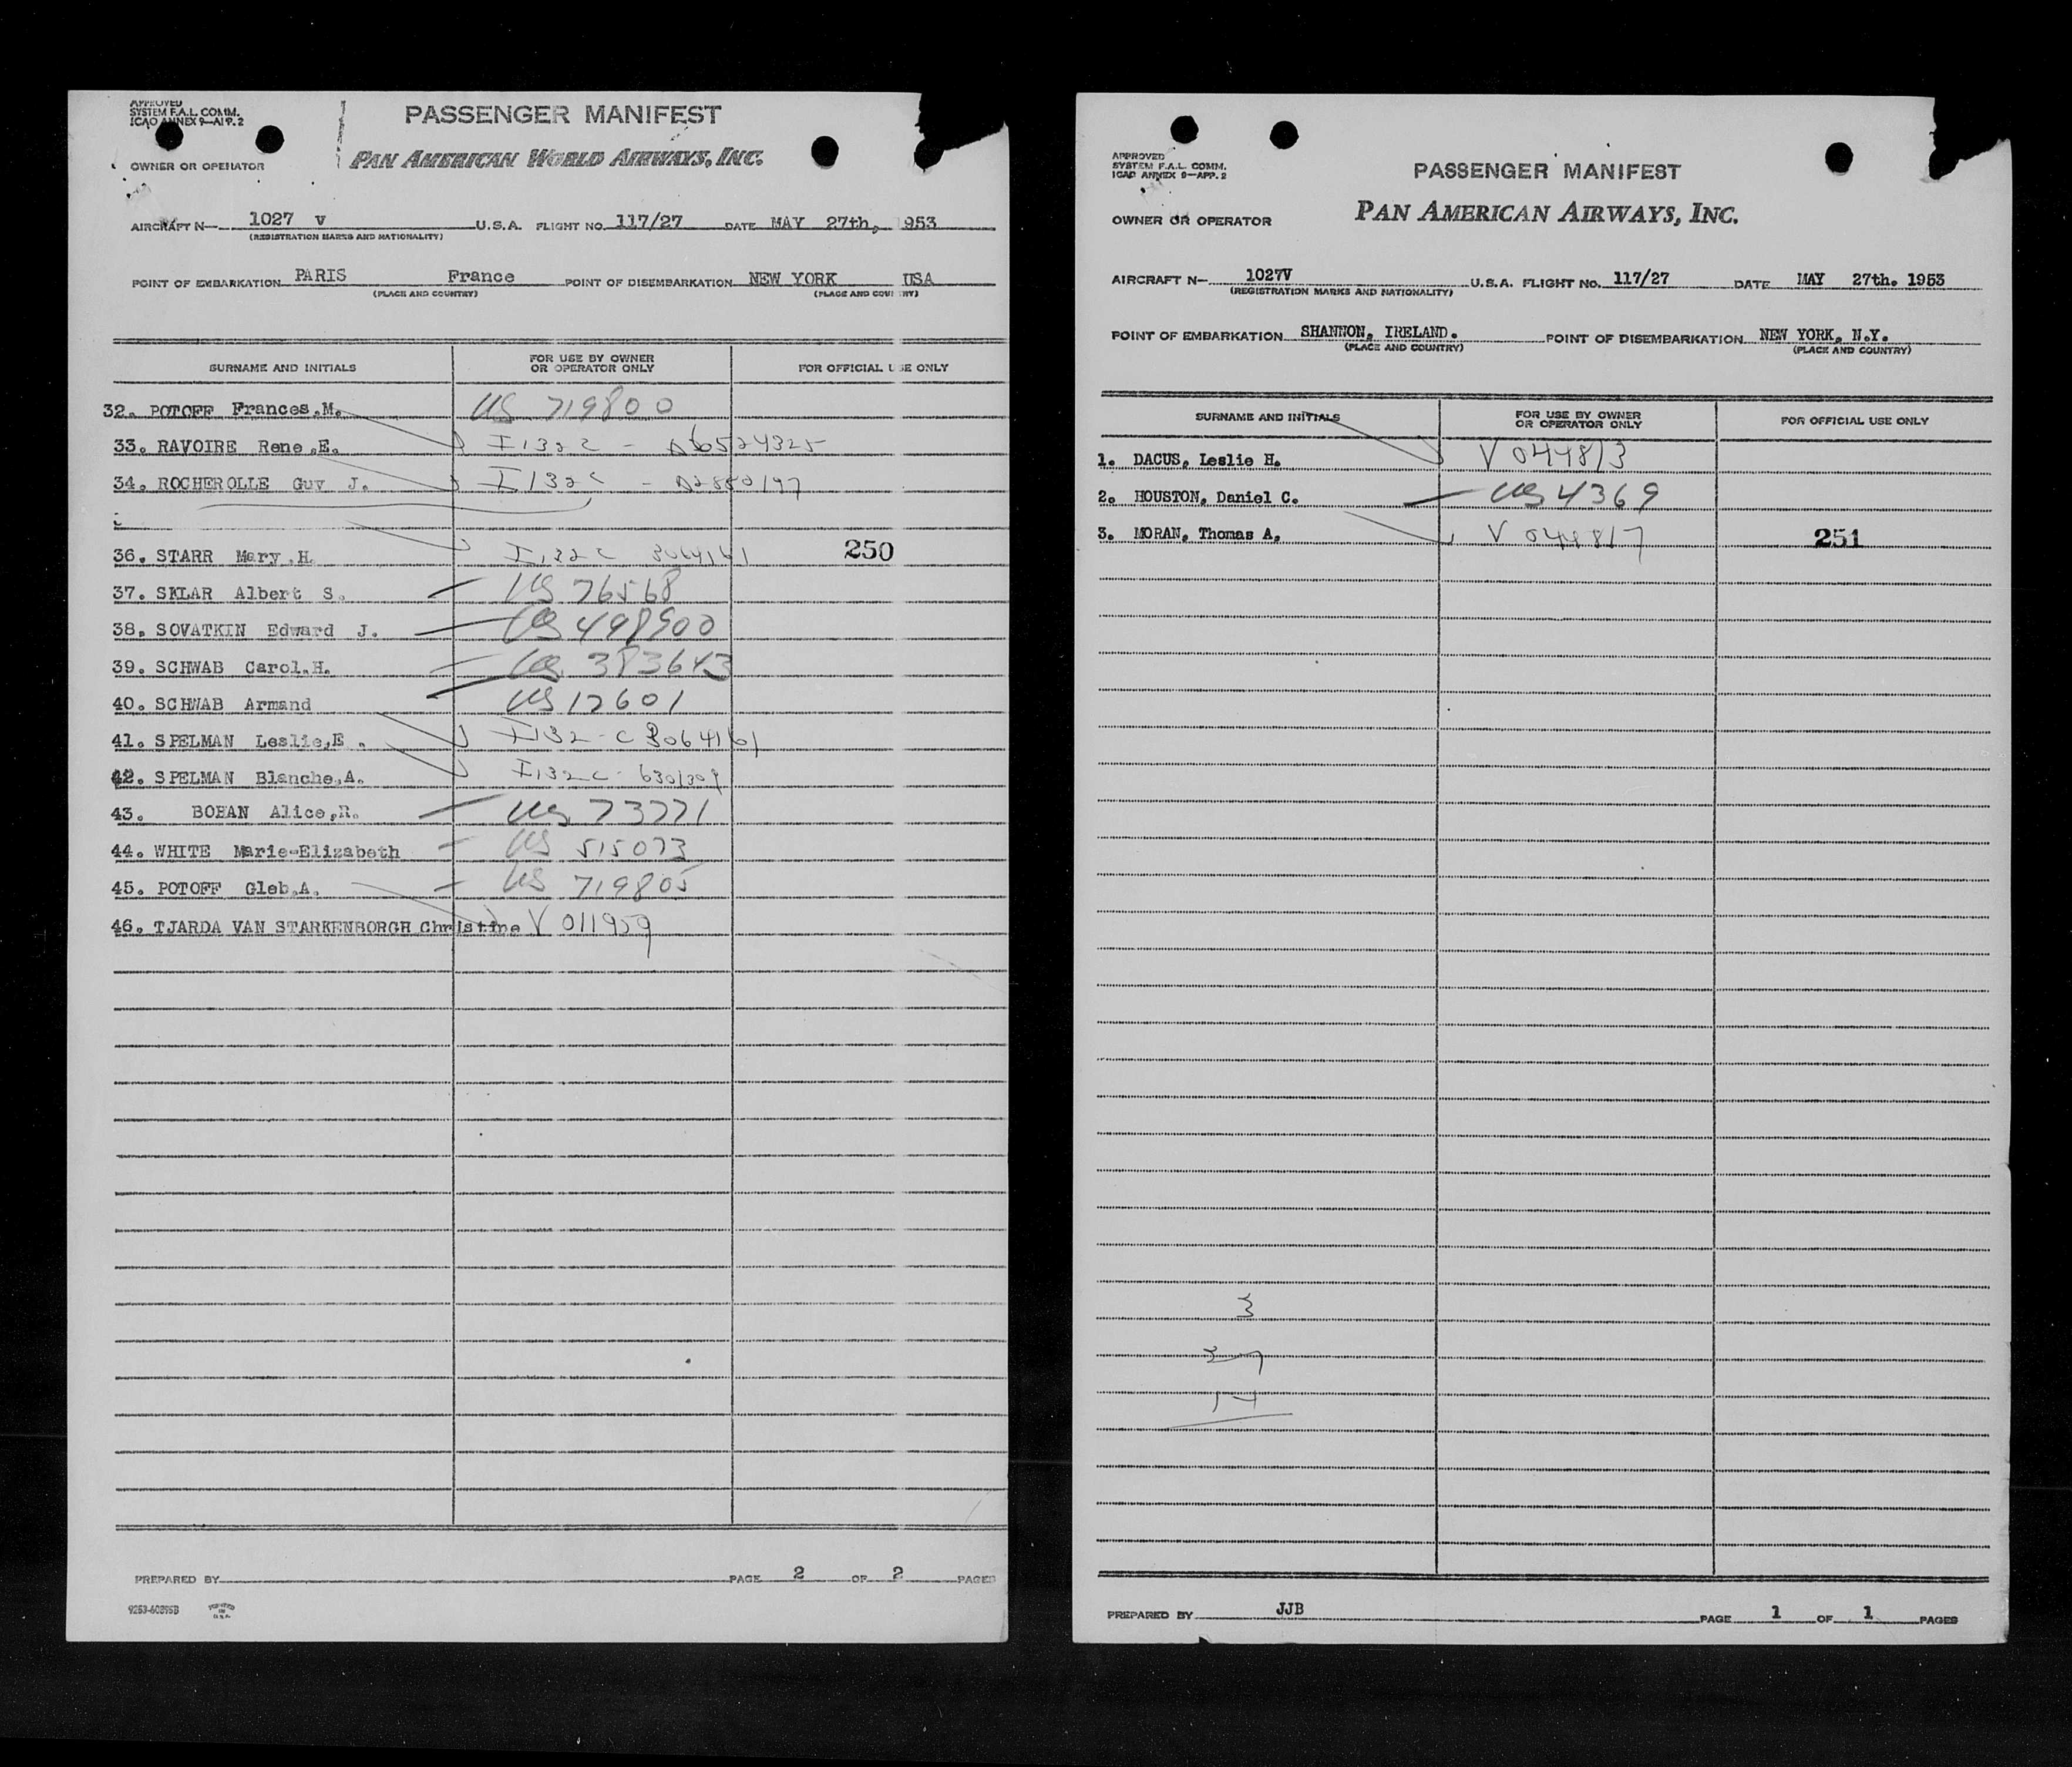 APPROVED
SYSTEM F.A.L. COMM.
ICAO ANNEX 9—AP P. 2
PASSENGER MANIFEST
OWNER OR OPERATOR
PAN AMERICAN WORLD AIRWAYS, INC.
AIRCRAFT N— 1027 V U.S.A. FLIGHT NO. 117/27 DATE MAY 27th, 1953
(REGISTRATION MARKS AND NATIONALITY)
POINT OF EMBARKATION PARIS France POINT OF DISEMBARKATION NEW YORK USA
(PLACE AND COUNTRY) (PLACE AND COUNTRY)
SURNAME AND INITIALS FOR USE BY OWNER OR OPERATOR ONLY FOR OFFICIAL USE ONLY
32. POTOFF Frances.M. US 719800
33. RAVOIRE Rene.E. I132C - A6524325
34. ROCHEROLLE Guy J. I132C - A2850197
36. STARR Mary.H. I132C 3064161 250
37. SKLAR Albert S. US 76568
38. SOVATKIN Edward J. US 498900
39. SCHWAB Carol.H. US 383643
40. SCHWAB Armand US 12601
41. SPELMAN Leslie,E. I132-C 3064161
42. SPELMAN Blanche,A. I132C - 6301309
43. BOHAN Alice,R. US 73771
44. WHITE Marie-Elizabeth US 515073
45. POTOFF Gleb.A. US 719805
46. TJARDA VAN STARKENBORGH Christine V 011959
PREPARED BY PAGE 2 OF 2 PAGES
9253-60395B PRINTED IN U.S.A.
APPROVED
SYSTEM F.A.L. COMM.
ICAO ANNEX 9—APP. 2
PASSENGER MANIFEST
OWNER OR OPERATOR
PAN AMERICAN AIRWAYS, INC.
AIRCRAFT N— 1027V U.S.A. FLIGHT NO. 117/27 DATE MAY 27th. 1953
(REGISTRATION MARKS AND NATIONALITY)
POINT OF EMBARKATION SHANNON, IRELAND. POINT OF DISEMBARKATION NEW YORK, N.Y.
(PLACE AND COUNTRY) (PLACE AND COUNTRY)
SURNAME AND INITIALS FOR USE BY OWNER OR OPERATOR ONLY FOR OFFICIAL USE ONLY
1. DACUS, Leslie H. V 044813
2. HOUSTON, Daniel C. US 4369
3. MORAN, Thomas A. V 044817 251
3
PREPARED BY JJB PAGE 1 OF 1 PAGES